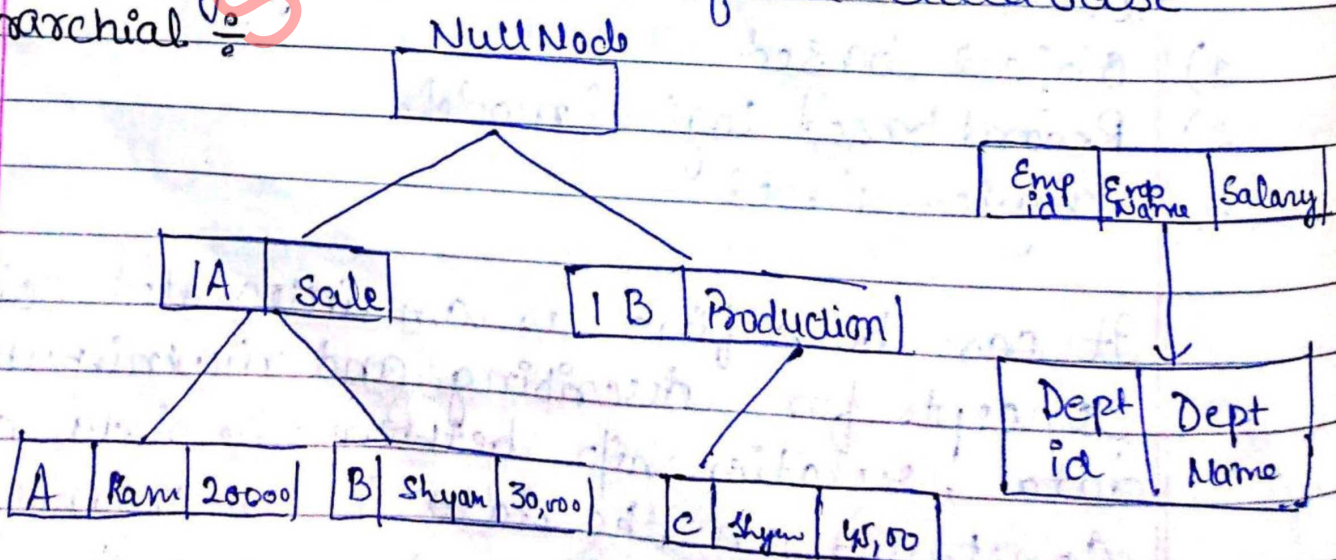 rarchial :-
Null Node
Emp id Emp Name Salary
1A Sale
1 B Production
Dept id Dept Name
A Ram 20000 B Shyam 30,000
C Shyam 45,00